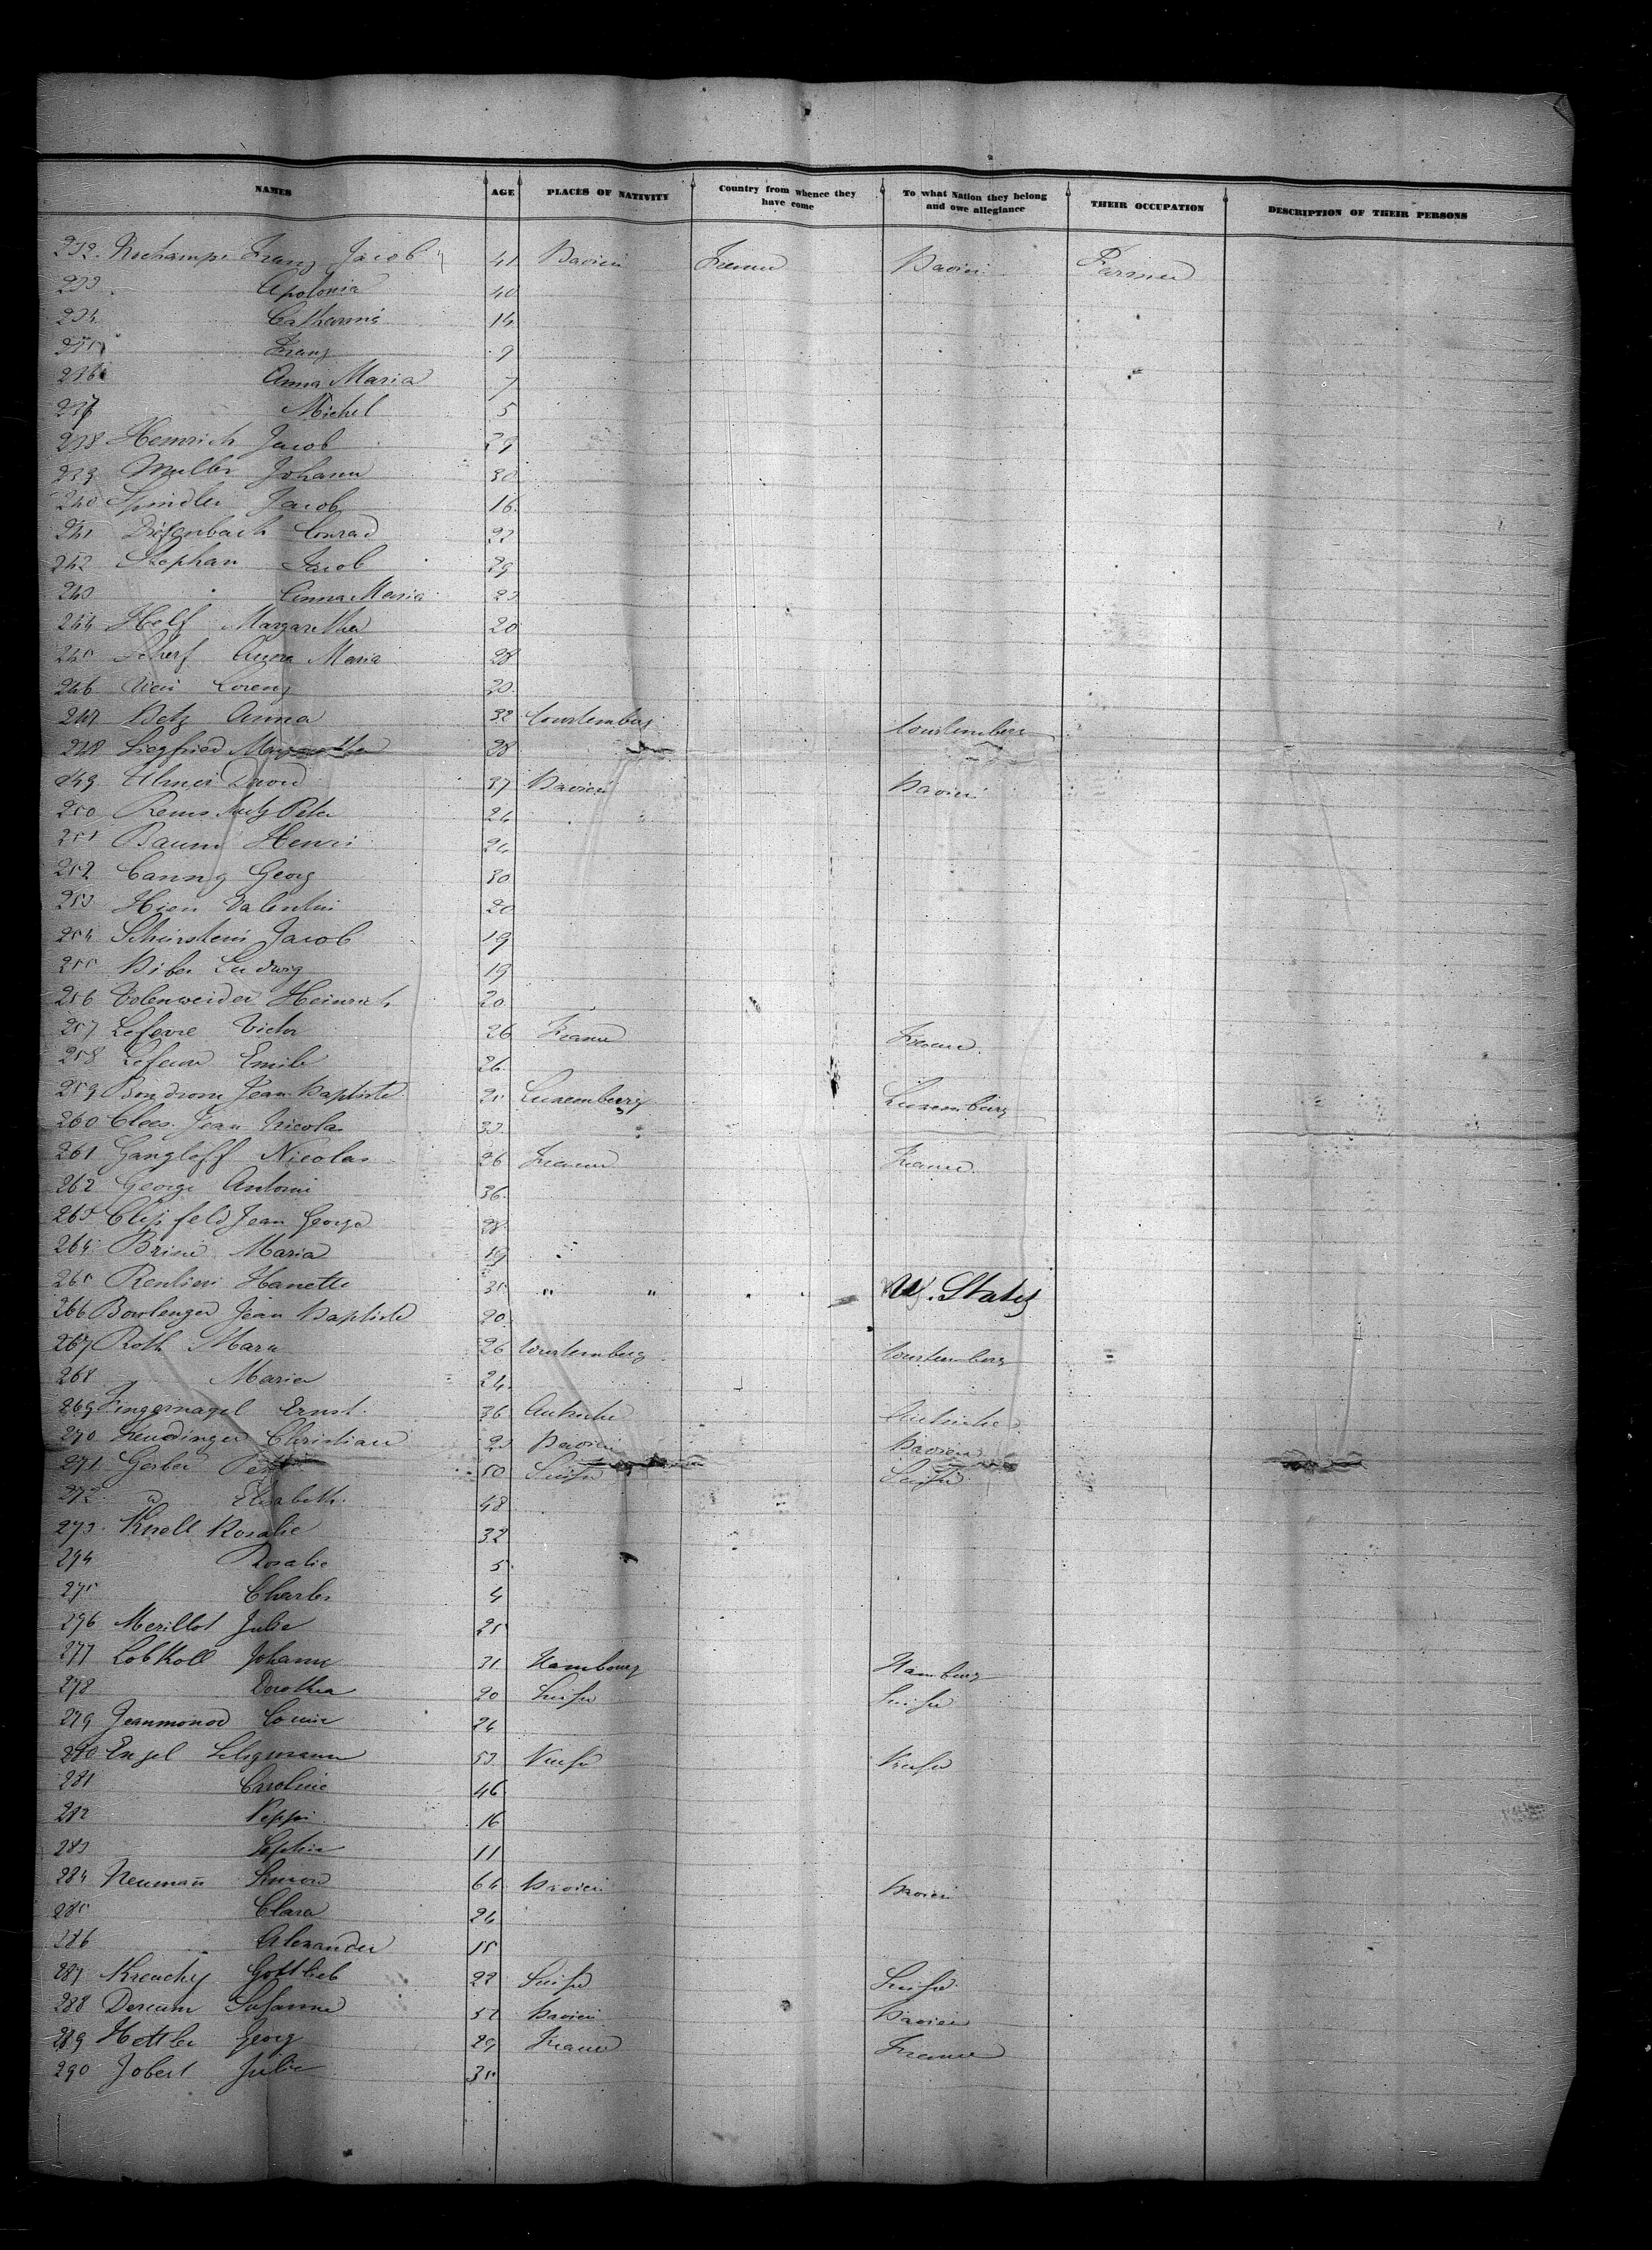 NAMES AGE PLACES OF NATIVITY Country from whence they have come To what Nation they belong and owe allegiance THEIR OCCUPATION DESCRIPTION OF THEIR PERSONS
232. Franz Jacob 41 Bavier France Bavier Farmer
233 Apolonia 40
234 Catharina 14
235 Franz 9
236 Anna Maria 7
237 Michel 5
238 Heinrich Jacob 29
239 Muller Johann 30
240 Spindler Jacob 16
241 Diefenbach Conrad 22
242 Stephan Jacob 29
243 Anna Maria 23
244 Helf Margaretha 20
245 Scherf Anna Maria 28
246 Lorenz 30
247 Betz Anna 32 Wurtemberg Wurtemberg
248 Siegfried Margaretha 28
249 Ulmer David 37 Bavier Bavier
250 Peter 24
251 Baum Henri 24
252 Georg 30
253 Hien Valentin 20
254 Jacob 19
255 Biber Ludwig 19
256 Volenweider Heinrich 20
257 Lefevre Victor 26 France France
258 Lefevre Emile 26
259 Jean Baptiste 25 Luxemburg Luxemburg
260 Cloes Jean Nicolas 33
261 Gangloff Nicolas 26 France France
262 George Antoni 36
263 Clipfeld Jean George 28
264 Maria 19
265 Hanette 35 " " U. States
266 Boulenger Jean Baptiste 20
267 Roth Mara 26 Wurtemberg Wurtemberg
268 Maria 24
269 Fingernagel Ernst 36 Autriche Autriche
270 Christian 23 Bavier Bavier
271 Gerber 50 Suisse Suisse
272 Elisabeth 48
273 Knell Rosalie 32
274 Rosalie 5
275 Charles 4
276 Merillot Julie 25
277 Lobkoll Johann 31 Hambourg Hamburg
278 Dorothea 20 Suisse Suisse
279 Jeanmonod Louise 24
280 Engel 53 Prusse Prusse
281 Caroline 46
282 Peppi 16
283 Sophie 11
284 Neumann Simon 64 Bavier Bavier
285 Clara 24
286 Alexander 15
287 Gottlieb 22 Suisse Suisse
288 Dercum Susanne 52 Bavier Bavier
289 Hottler Georg 29 France France
290 Jobert Julie 35